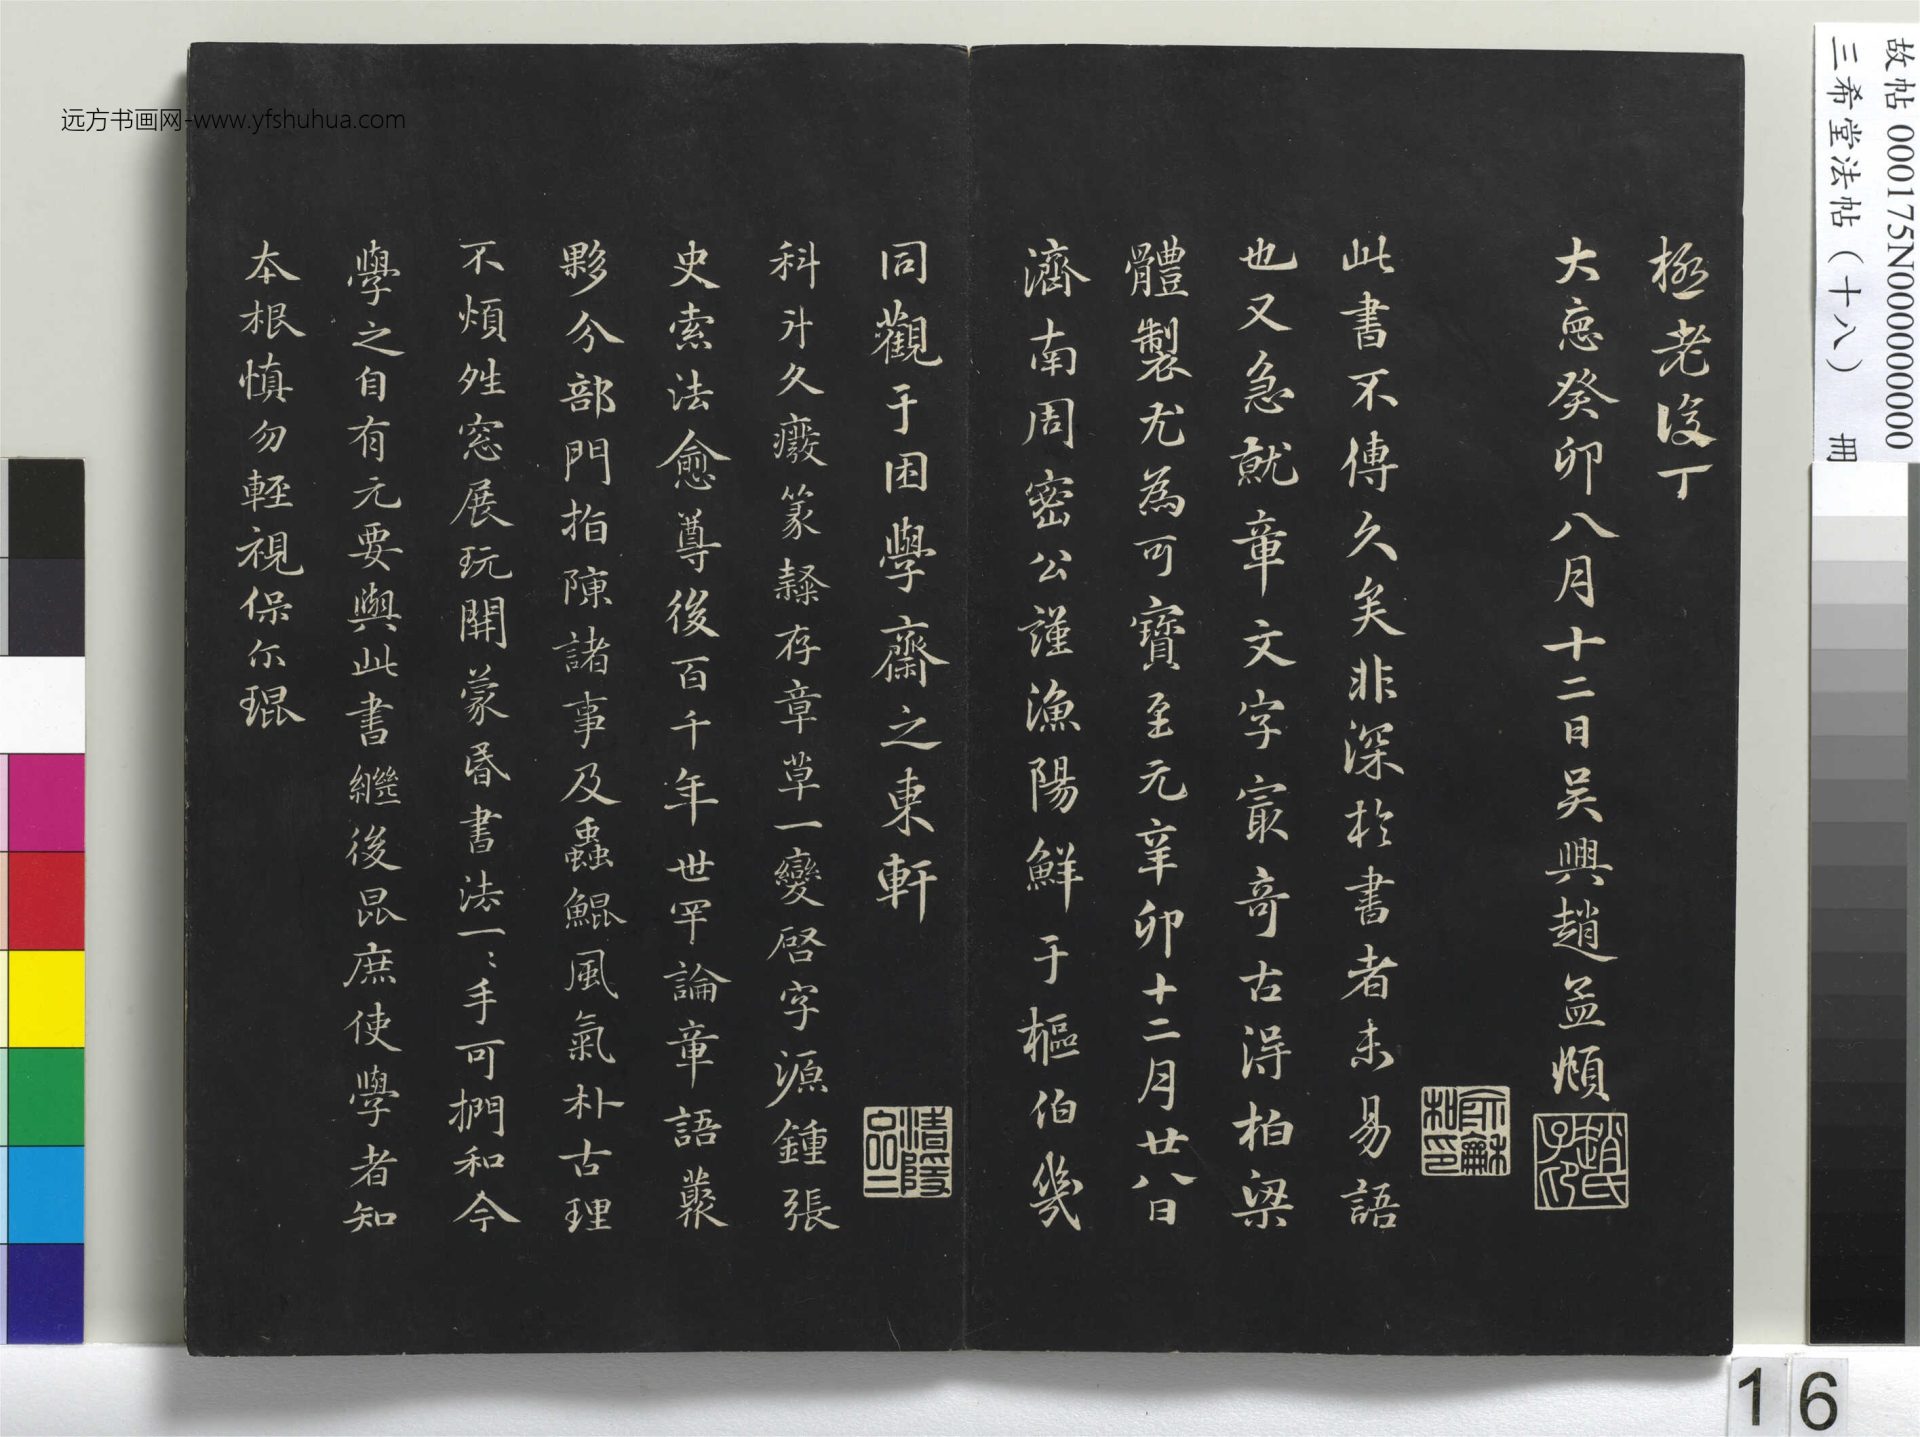 極老後丁
大德癸卯八月十二日吳興趙孟頫
趙氏子印
俞龢
和印
此書不傳久矣非深於書者未易語
也又急就章文字寂奇古得柏梁
體製尤為可寶至元辛卯十二月廿八日
濟南周密公謹漁陽鮮于樞伯幾
同觀于困學齋之東軒
清隱
品二
科斗久癈篆隸存章草一變啓字源鍾張
史索法愈尊後百千年世罕論章語叢
夥分部門指陳諸事及蟲鯤風氣朴古理
不煩牲窓展玩開蒙昏書法一〻手可捫和今
學之自有元要與此書繼後昆庶使學者知
本根慎勿輕視保尓琨
故帖 000175N000000000
三希堂法帖（十八） 冊
远方书画网-www.yfshuhua.com
16